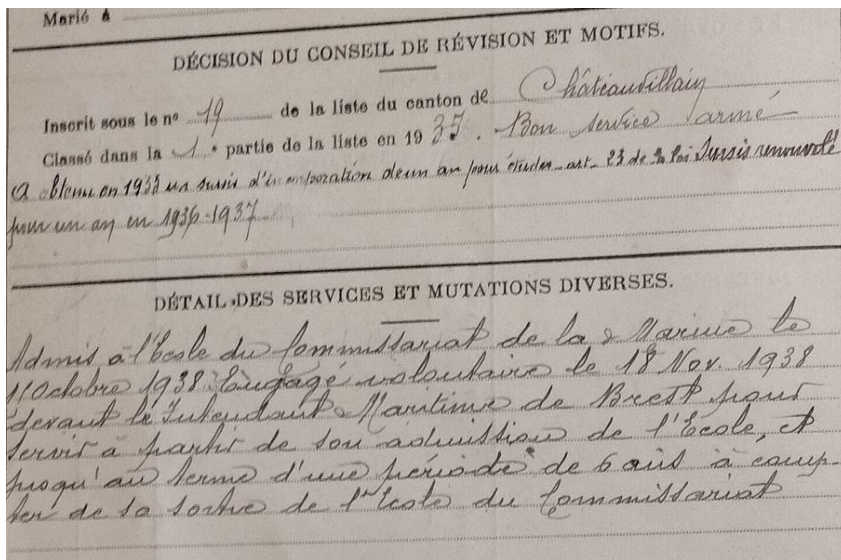 Marié à
DÉCISION DU CONSEIL DE RÉVISION ET MOTIFS.
Inscrit sous le nº 19 de la liste du canton de Châteauvillain
Classé dans la 1e partie de la liste en 1935. Bon service armé
A obtenu en 1935 un sursis d'incorporation de un an pour études art. 23 de la loi Sursis renouvelé
pour un an en 1936-1937
DÉTAIL DES SERVICES ET MUTATIONS DIVERSES.
Admis à l'Ecole du Commissariat de la Marine le
1 Octobre 1938. Engagé volontaire le 18 Nov. 1938
devant le Intendant Maritime de Brest pour
servir à partir de son admission de l'Ecole, et
jusqu'au terme d'une période de 6 ans à comp-
ter de sa sortie de l'Ecole du Commissariat